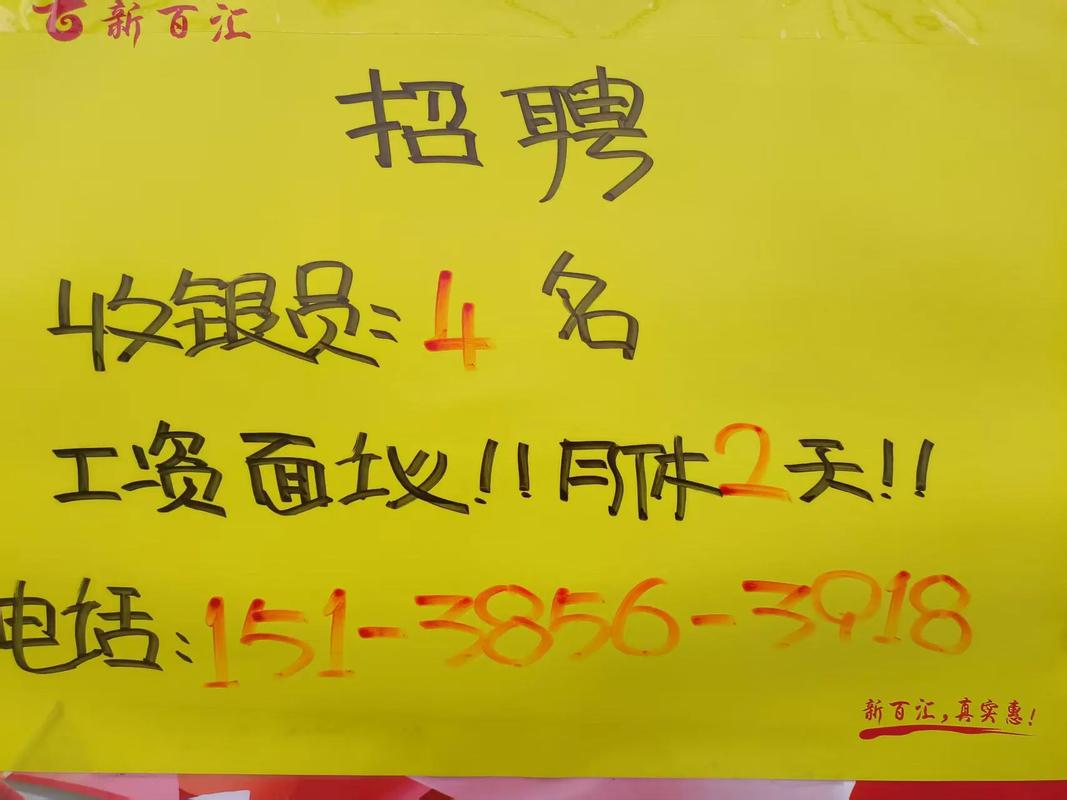 新百汇
招聘
收银员:4名
工资面议!!月休2天!!
电话:151-3856-3918
新百汇,真实惠!